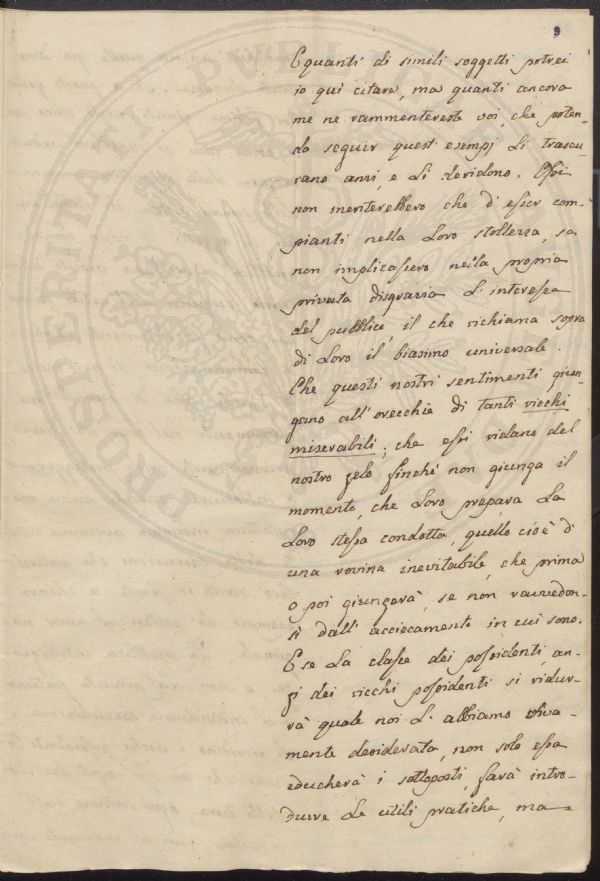 9
E quanti di simili soggetti potrei
io quì citare, ma quanti ancora
me ne rammentereste voi, che poten-
do seguir quest' esempj li trascu-
rano anzi, e li deridono. Essi
non meriterebbero che d' esser com-
pianti nella loro stoltezza, se
non implicassero nella propria
privata disgrazia l' interesse
del pubblico, il che richiama sopra
di loro il biasimo universale.
Che questi nostri sentimenti giun-
gano all' orecchie di tanti ricchi
miserabili; che essi ridano del
nostro zelo finchè non giunga il
momento, che loro prepara la
loro stessa condotta, quello cioè d'
una rovina inevitabile, che prima
o poi giungerà, se non ravvedon-
si dall' acciecamente in cui sono.
E se la classe dei possidenti, an-
zi dei ricchi possidenti si ridur-
rà quale noi l' abbiamo viva-
mente desiderata, non solo essa
educherà i sottoposti, farà intro-
durre le utili pratiche, ma
PROSPERITATI PUBLICAE